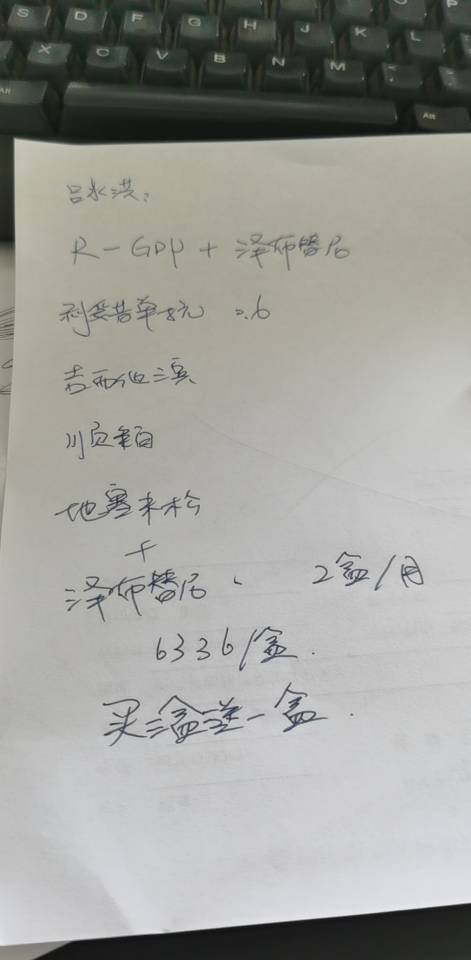 S D F G H J K L
X C V B N M
Alt Alt
吕永洪:
R-GDP + 泽布替尼
利妥昔单抗 0.6
吉西他滨
顺铂
地塞米松
+
泽布替尼、 2盒/月
6336/盒.
买三盒送一盒.